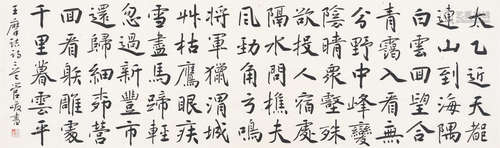 太乙近天都
連山到海隅
白雲回望合
青靄入看無
分野中峰變
陰晴衆壑殊
欲投人宿處
隔水問樵夫
風勁角弓鳴
將軍獵渭城
艸枯鷹眼疾
雪盡馬蹄輕
忽過新豐市
還歸細柳營
回看射雕處
千里暮雲平
王摩詰詩 書